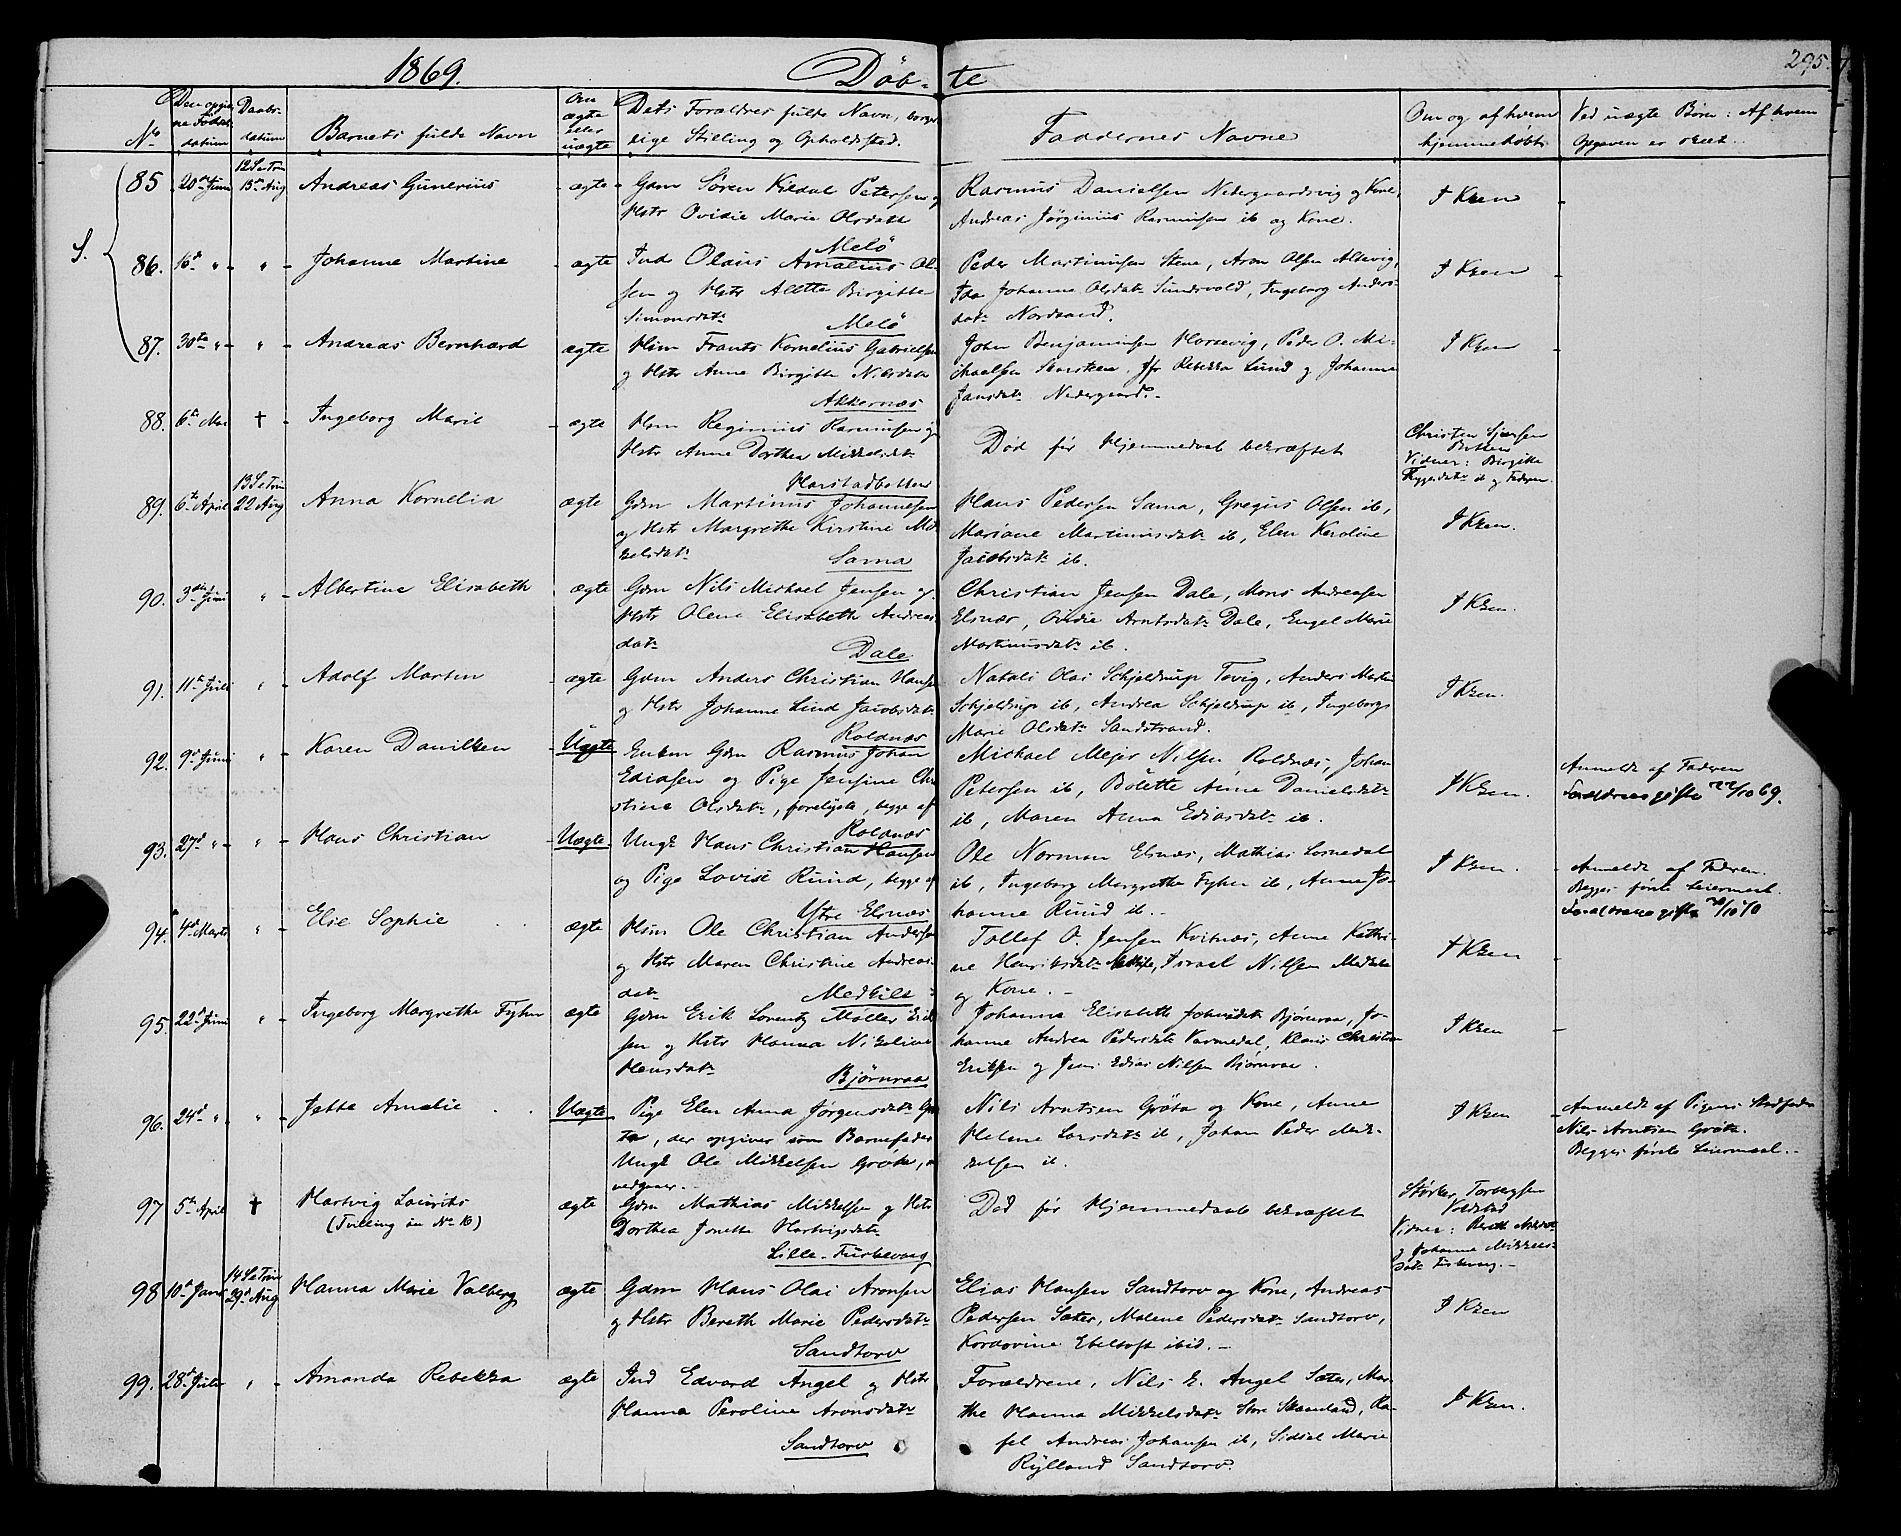 1869.
Døb-te
295.
No
Den opgivne Føds. datum
Daabs-datum
Barnets fulde Navn
Om ægte eller uægte
Dets Forældres fulde Navn, borgerlige Stilling og Opholdssted.
Faddernes Navne
Om og af hvem hjemmedøbt
Ved uægte Børn: Af hvem Opgaven er skeet.
S.
85 20de Juni 12 S e Trin 15de Aug Andreas Gunerius ægte
Gdm Søren Kildal Petersen og
Hstr Ovidie Marie Olsdatt
Melö
Rasmus Danielsen Nedergaardsvig og Kone,
Andreas Jørginius Rasmussen ib og Kone.
I Krken
86. 16d " " Johanne Martine ægte
Ind Olaus Amalius Ol-
sen og Hstr Alette Birgitte
Simonsdatr Melö
Peder Martinusen Stene, Aron Olsen Altevig,
Ida Johanne Olsdatr Sundsvold, Ingeborg Anders-
datr Nordsand.
I Krken
87. 30te " " Andreas Bernhard ægte
Hsm Frants Kornelius Gabrielsen
og Hstr Anne Birgitte Nilsdatr
Akkernæs
John Benjaminsen Horsevig, Peder O. Mi-
chaelsen, Jfr Rebekka Lund og Johanna
Jansdatr Nedergaard.
I Krken
88. 6te Mai † Ingeborg Marie ægte
Hsm Reginius Rasmusen og
Hstr Anne Dorthea Mikkelsdatr
Harstadbotten
Død før Hjemmedaab bekræftet
Christen
Botten
Vidner: Birgitte
ib og Faderen
89. 6te April 13 S e Trin 22 Aug Anna Kornelia ægte
Gdm Martinus Johannesen
og Hstr Margrethe Kirstine Mik-
kelsdatr Sama
Hans Pedersen Sama, Gregus Olsen ib,
Mariane Martinusdatr ib, Elen Karoline
Jacobsdatr ib.
I Krken.
90. 3die Juni " Albertine Elisabeth ægte
Gdm Nils Michael Jensen og
Hstr Olena Elisabeth Andreas-
datr Dale
Christian Jensen Dale, Mons Andreasen
Elsnæs, Ovidie Arntsdatr Dale, Engel Marie
Martinusdatr ib.
I Krken.
91. 11te Juli " Adolf Martin ægte
Gdm Anders Christian Hansen
og Hstr Johanne Lind Jacobsdatr
Roldnæs
Natali Olai Schjeldrup Tovig, Anders Martin
Schjeldrup ib, Andrea Schjeldrup ib, Ingeborg
Marie Olsdatr Sandstrand.
I Krken.
92. 9d Juni " Karen Danilken Uægte
Enkem Gdm Rasmus Johan
Ediasen og Pige Jensine Chri-
stine Olsdatr, forelyste, begge af
Roldnæs
Michael Mejer Nilsen Roldnæs, Johan
Petersen ib, Bolette Anne Danielsdatr
ib, Maren Anna Ediasdatr ib.
I Krken.
Anmeldt af Faderen
Forældrene gifte 22/10 69.
93. 27d " " Hans Christian Uægte
Ungk Hans Christian Hansen
og Pige Lovise Ruud, begge af
Ytre Elsnæs
Ole Norman Elsnæs, Mathias Lornedal
ib, Ingeborg Margrethe Fyhn ib, Anne Jo-
hanne Ruud ib.
I Krken.
Anmeldt af Faderen.
Begges første Leiermaal.
Forældrene gifte
94. 4d Marts " Elie Sophie ægte
Hsm Ole Christian Andersen
og Hstr Maren Christine Andreas-
datr Medkile
Tollef O. Jensen Kvitnæs, Anne Kathri-
ne Henriksdatr, Israel Nilsen Medkile
og Kone.
I Krken
95. 22d Juni " Ingeborg Margrethe Fyhn ægte
Gdm Erik Lorentz Møller Erik-
sen og Hstr Hanna Nikoline
Hansdatr Bjørnraa
Johanna Elisabeth Johnsdatr Bjørnraa, Jo-
hanne Andrea Pedersdatr Varmedal, Klaus Christian
Eriksen og Jens Edias Nilsen Bjørnraa.
I Krken
96. 24d " " Jette Amalie Uægte
Pige Elen Anna Jørgensdatr Grø-
ta, der opgiver som Barnefader
Ungk Ole Mikkelsen Grøta,
vedgaaer.
Nils Arntsen Grøta og Kone, Anne
Helene Larsdatr ib, Johan Peder Mik-
kelsen ib.
I Krken
Anmeldt af Pigens Stedfader
Nils Arntsen Grøta.
Begges første Leiermaal.
97 5te April † Hartvig Laurits ægte
(Tvilling se No 16)
Gdm Mathias Mikkelsen og Hstr
Dorthea Jonette Hartvigsdatr
Lille-Fuskevaag
Død før Hjemmedaab bekræftet
Størker Torbergsen
Voldstad
Vidner: Bereth
og Johanne Mikkels-
datr
98 10de Janr 14 S e Trin 29d Aug Hanna Marie Valberg ægte
Gdm Hans Olai Aronsen
og Hstr Bereth Marie Pedersdatr
Sandtorv
Elias Hansen Sandtorv og Kone, Andreas
Pedersen Sæter, Malene Pedersdatr Sandtorv,
Kordovine Ebeltoft ibid.
I Krken
99. 28d Juli " Amanda Rebekka ægte
Ind Edvard Angel og Hstr
Hanna Peroline Aronsdatr
Sandtorv
Forældrene, Nils E. Angel Sæter, Mar-
the Hanna Mikkelsdatr Store Skaanland, Ra-
fel Andreas Johansen ib, Sidsel Marie
Rylland Sandtorv.
I Krken.